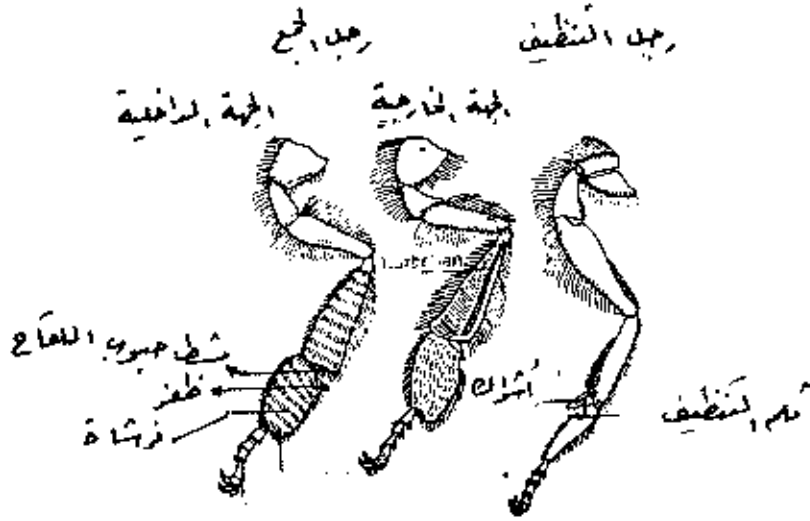 رجل التنظيف
رجل الجمع
الجهة الخارجية
الجهة الداخلية
مشط حبوب اللقاح
ظفر
فرشاة
أشواك
ثلم التنظيف